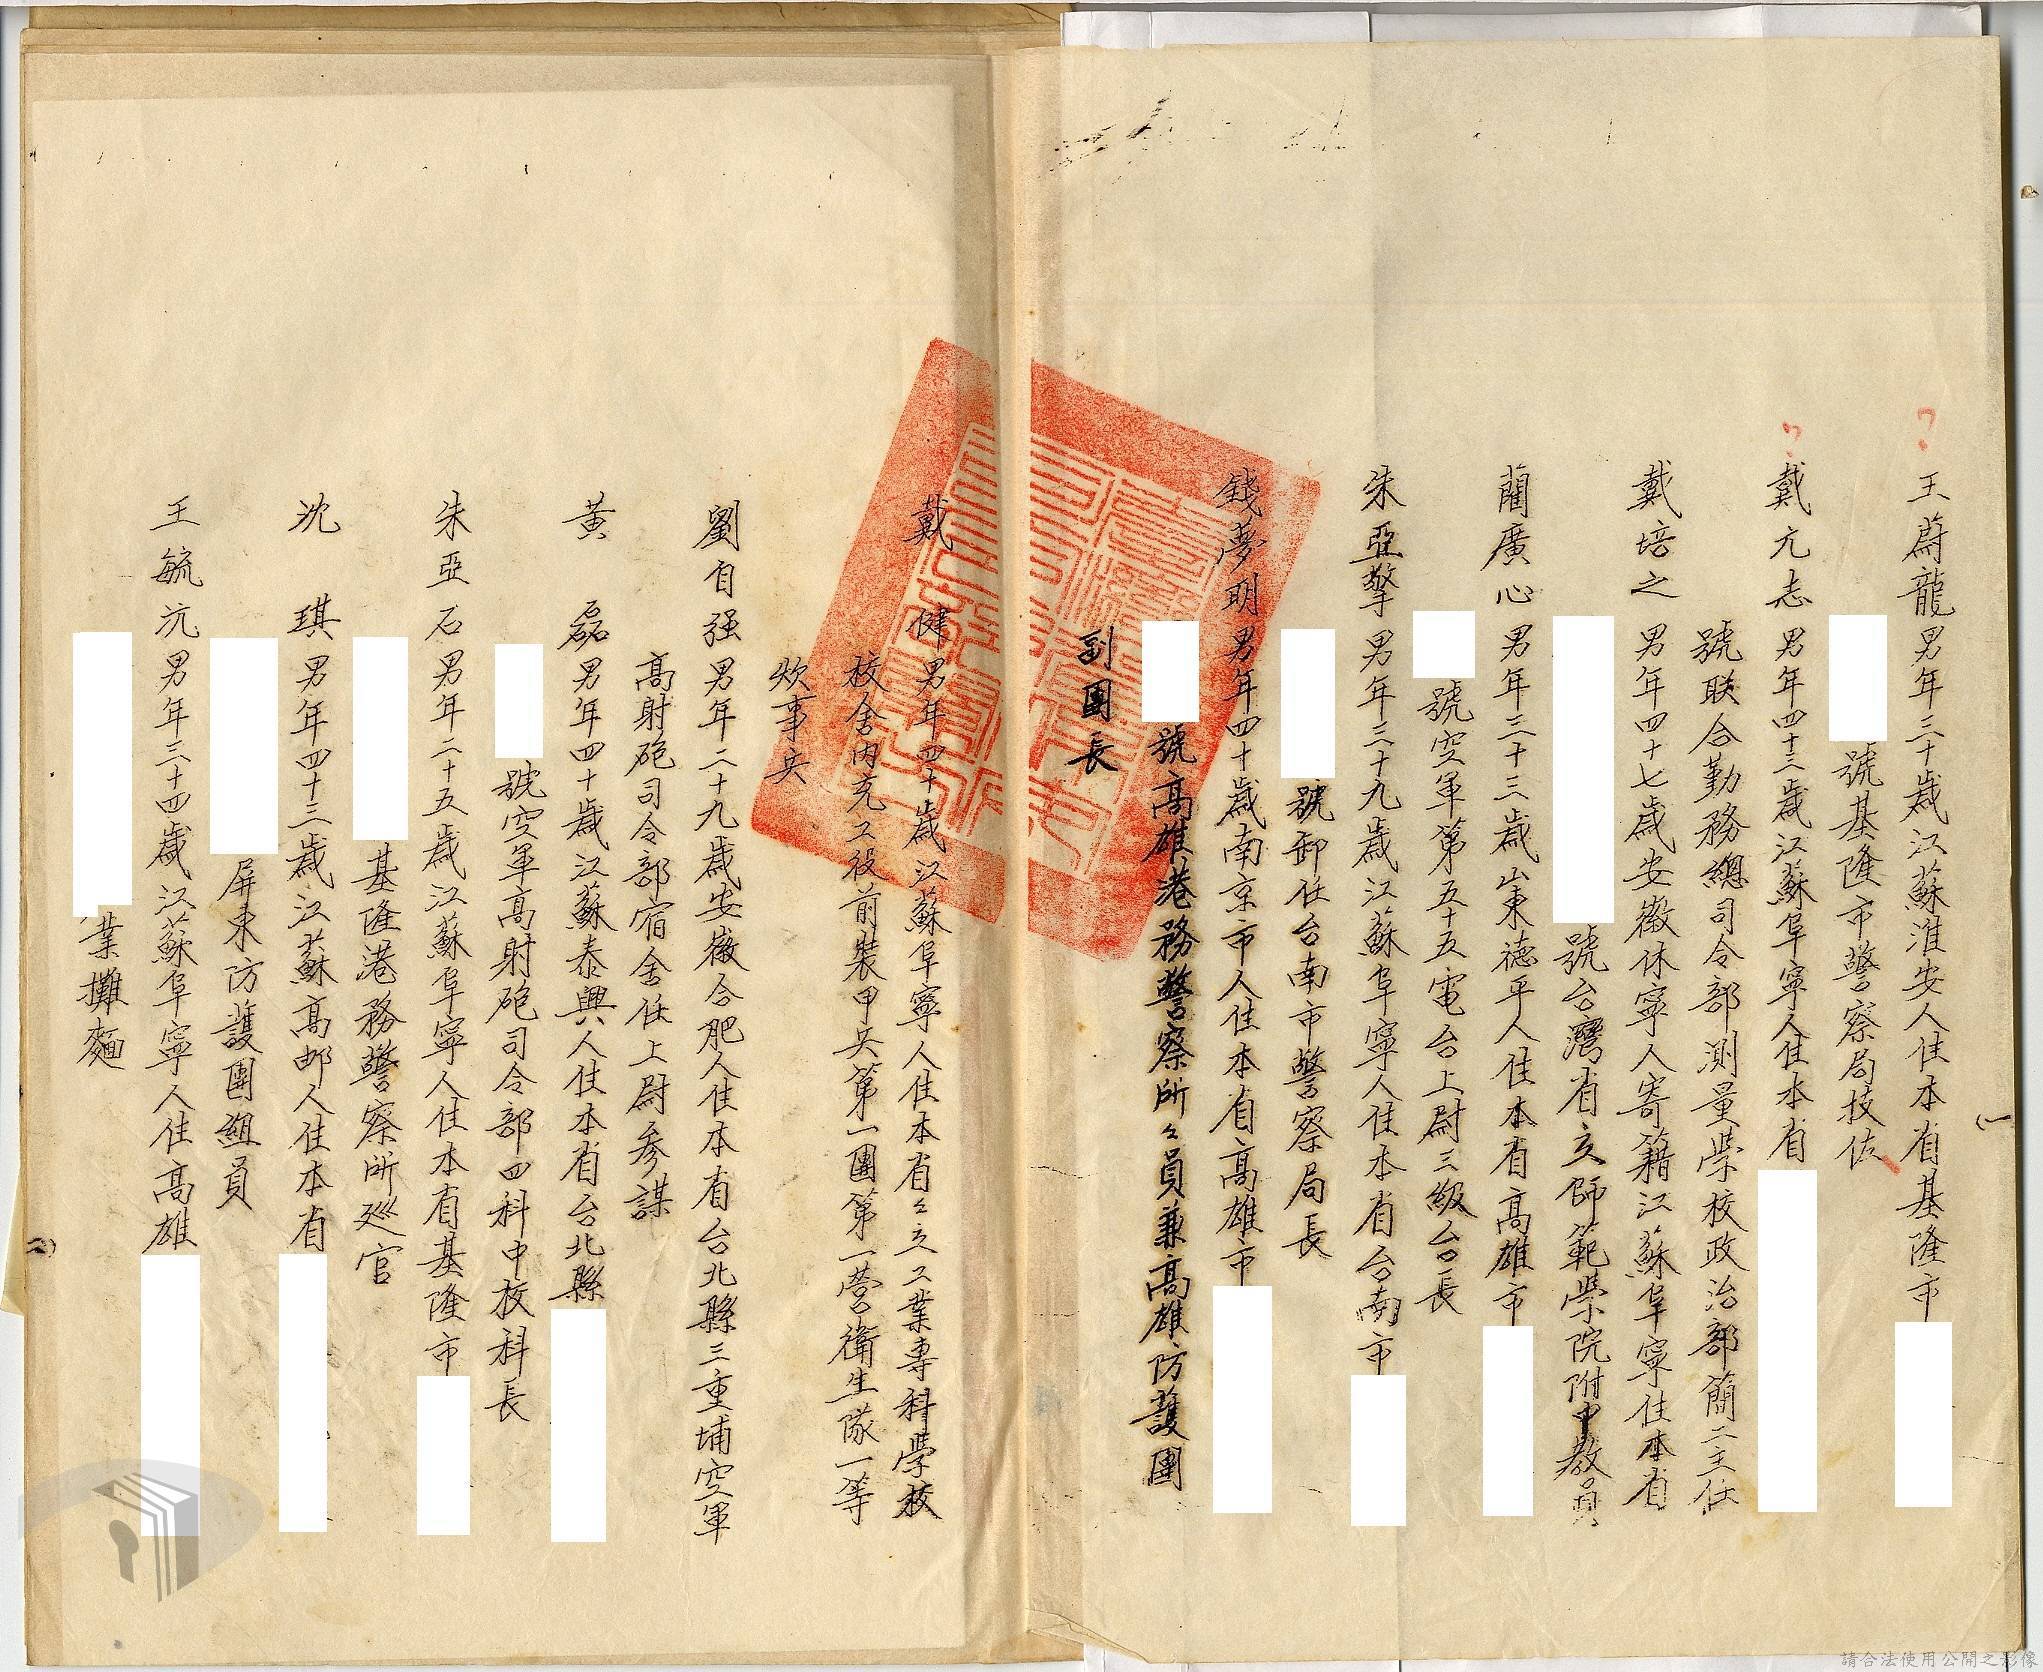 王蔚龍 男年三十歲江蘇淮安人住本省基隆市
號基隆市警察局技佐
戴亢志 男年四十三歲江蘇阜寧人住本省
號联合勤務總司令部測量學校政治部簡二主任
戴培之 男年四十七歲安徽休寧人寄籍江蘇阜寧住本省
號台灣省立師範學院附中教員
藺廣心 男年三十三歲山東德平人住本省高雄市
號空軍第五十五電台上尉三級台長
朱亞擎 男年三十九歲江蘇阜寧人住本省台南市
號卸任台南市警察局長
錢夢明 男年四十歲南京市人住本省高雄市
號高雄港務警察所々員兼高雄防護團
副團長
戴 健 男年四十歲江蘇阜寧人住本省々立工業專科學校
校舍内充工役前裝甲兵第一團第一營衛生隊一等
炊事兵
劉自强 男年二十九歲安徽合肥人住本省台北縣三重埔空軍
高射砲司令部宿舍任上尉参謀
黃 磊 男年四十歲江蘇泰興人住本省台北縣
號空軍高射砲司令部四科中校科長
朱亞石 男年二十五歲江蘇阜寧人住本省基隆市
基隆港務警察所巡官
沈 琪 男年四十三歲江蘇高邮人住本省
屏東防護團組員
王毓沆 男年三十四歲江蘇阜寧人住高雄
業攤麵
請合法使用公開之影像